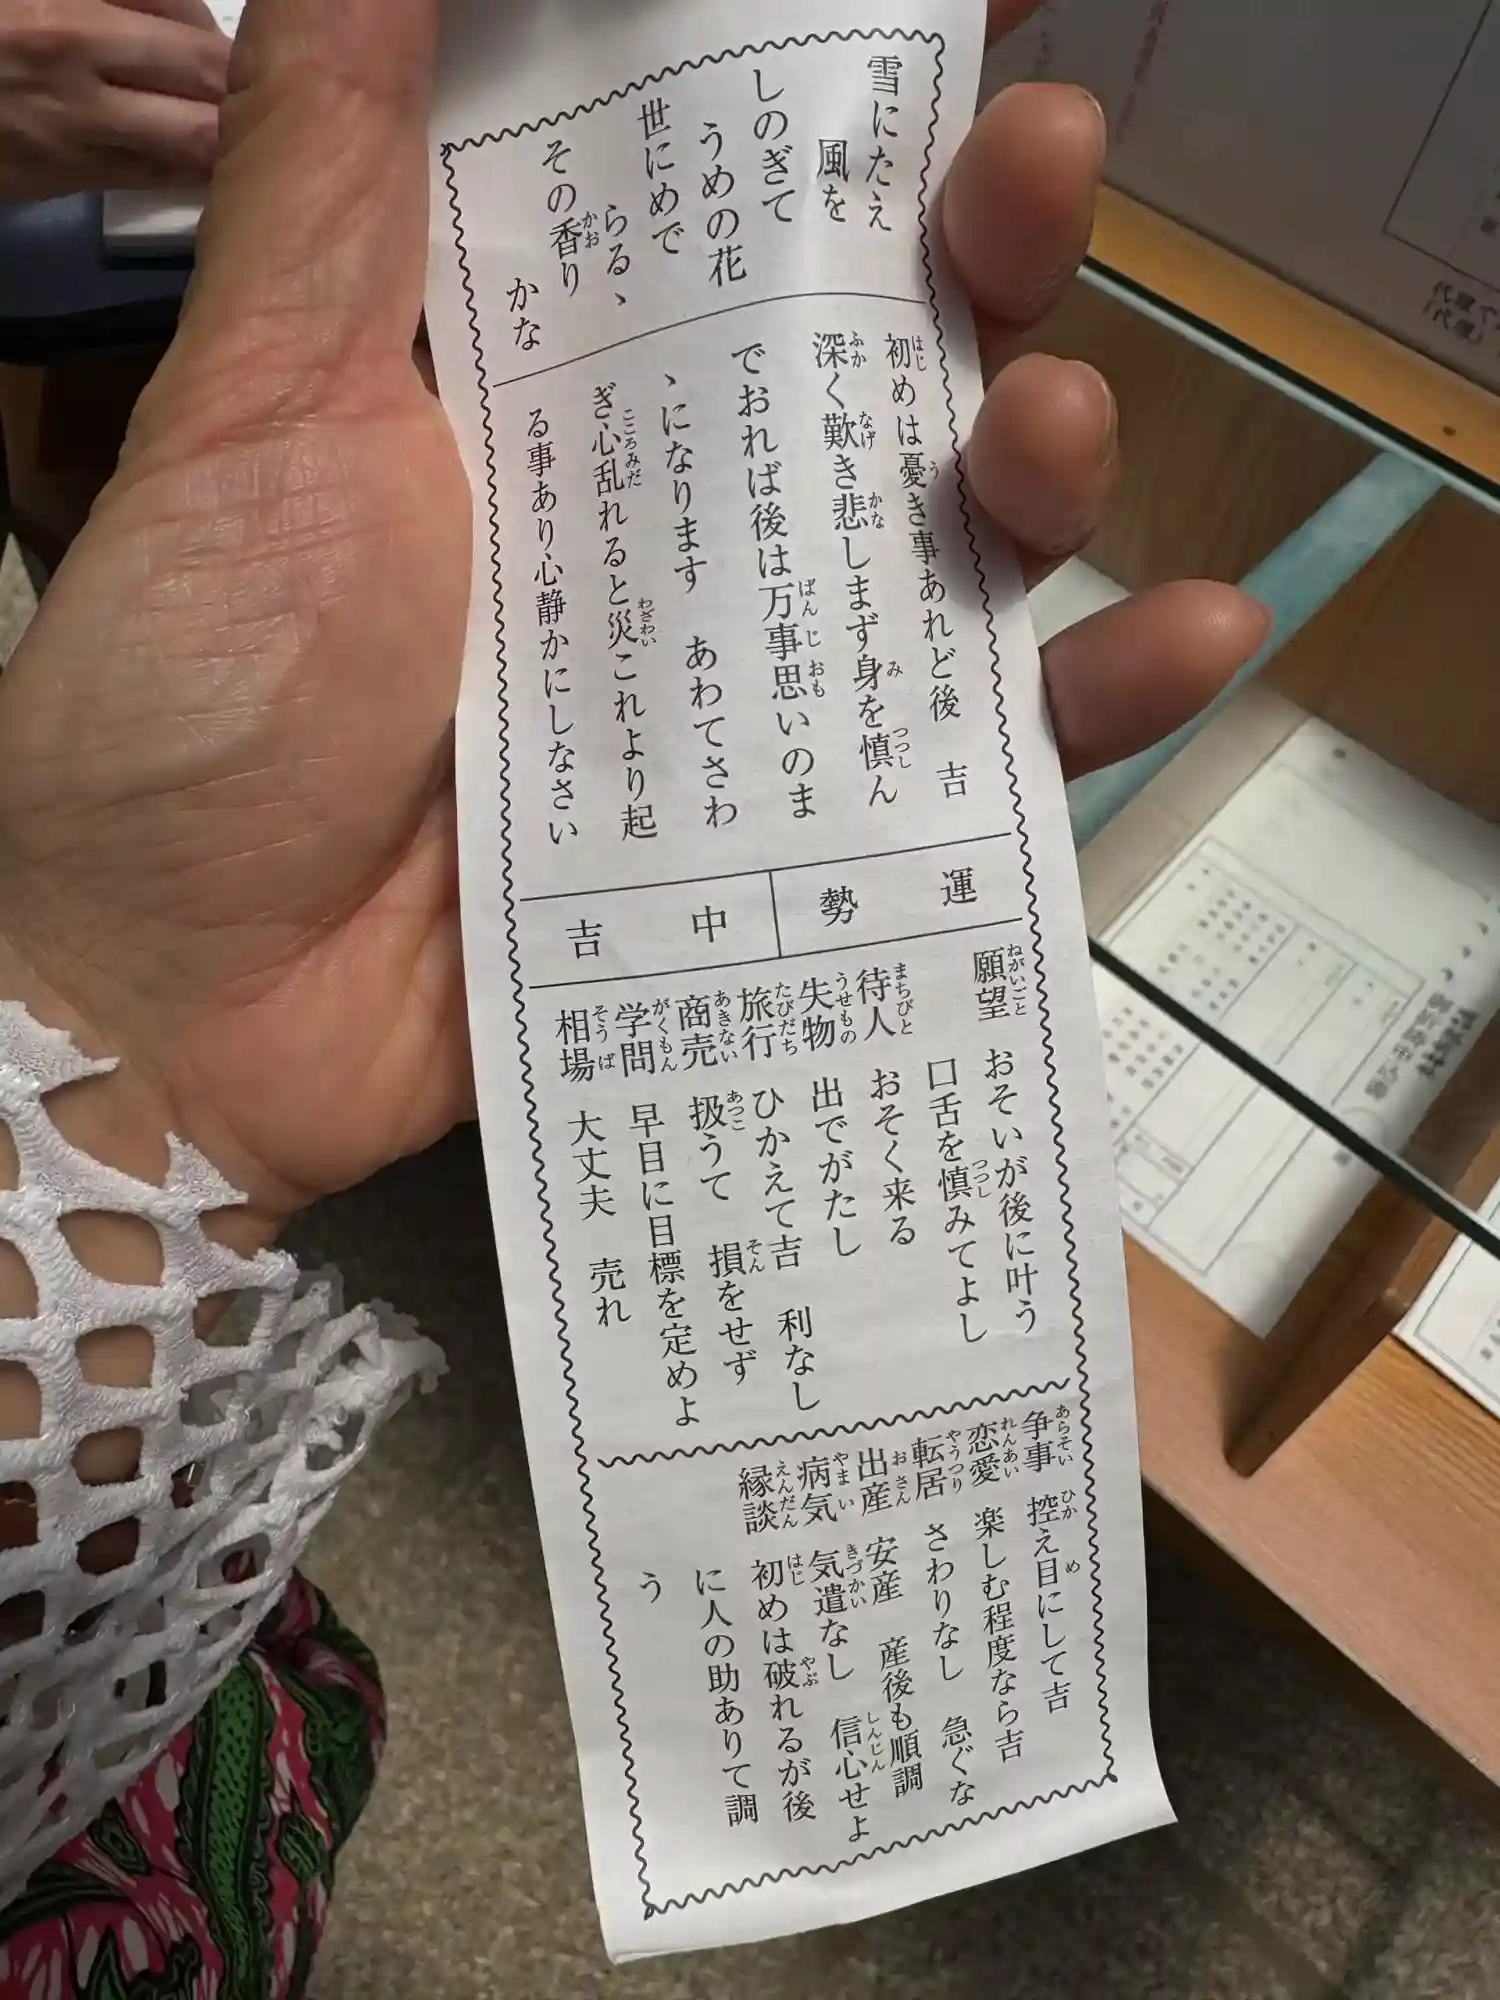 雪にたえ
風を
しのぎて
うめの花
世にめで
らるゝ
その香り
かな
初めは憂き事あれど後　吉
深く歎き悲しまず身を慎ん
でおれば後は万事思いのま
ゝになります　あわてさわ
ぎ心乱れると災これより起
る事あり心静かにしなさい
運勢
中吉
願望　おそいが後に叶う
口舌を慎みてよし
待人　おそく来る
失物　出でがたし
旅行　ひかえて吉　利なし
商売　扱うて　損をせず
学問　早目に目標を定めよ
相場　大丈夫　売れ
争事　控え目にして吉
恋愛　楽しむ程度なら吉
転居　さわりなし　急ぐな
出産　安産　産後も順調
病気　気遣なし　信心せよ
縁談　初めは破れるが後
に人の助ありて調
う